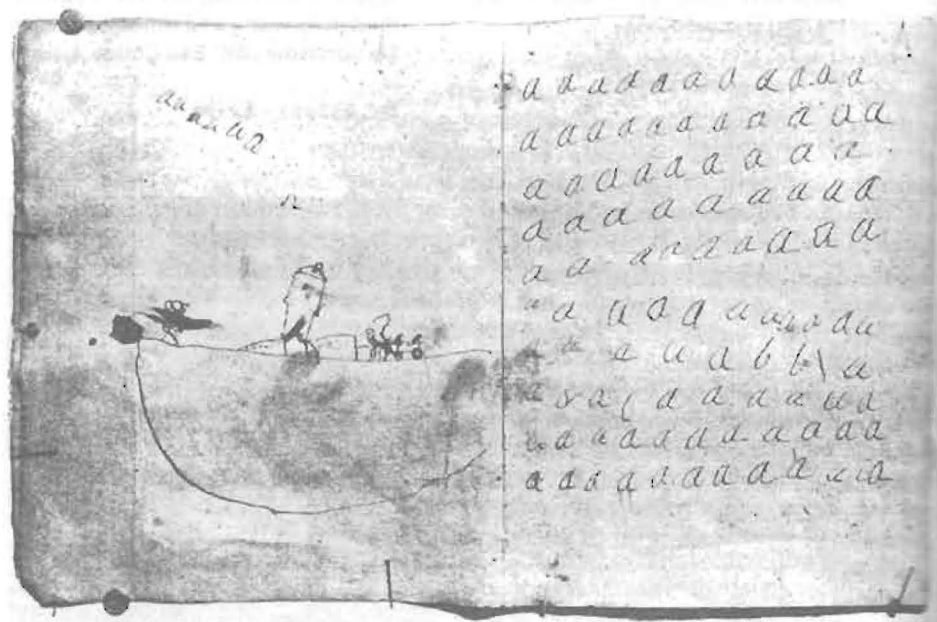 aaaaaaa
a a a a a a a a a a a
a a a a a a a a a a a
a a a a a a a a a a
a a a a a a a a a a
a a a a a a a a a a
a a a a a a a a a a
a a a b b \ a
a a a a a a a a
a a a a a a a a a a
a a a a a a a a a a a